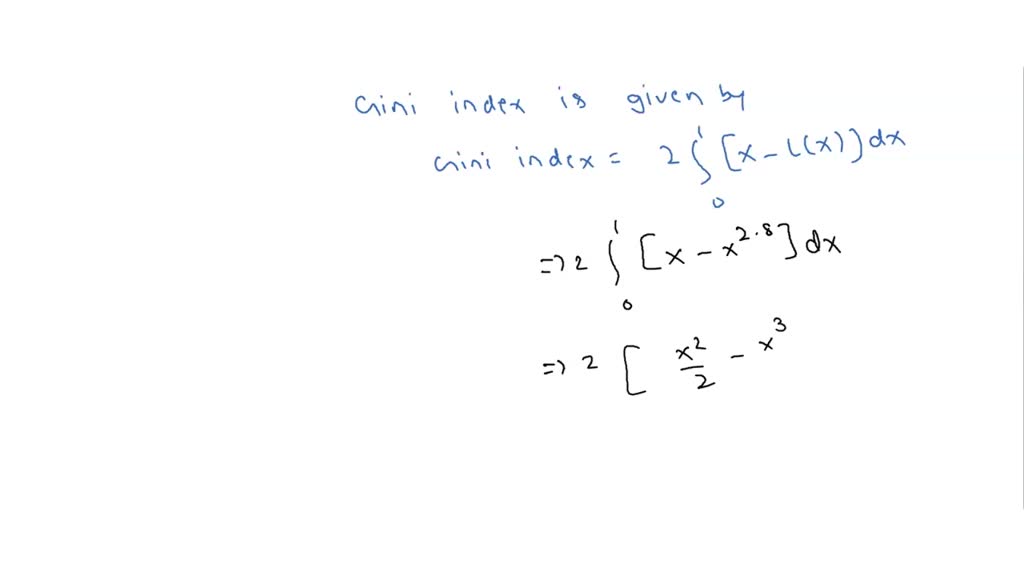 Gini index is given by
Gini index = 2 ∫₀¹ [x - L(x)] dx
=> 2 ∫₀¹ [x - x^2.8] dx
=> 2 [ x²/2 - x³